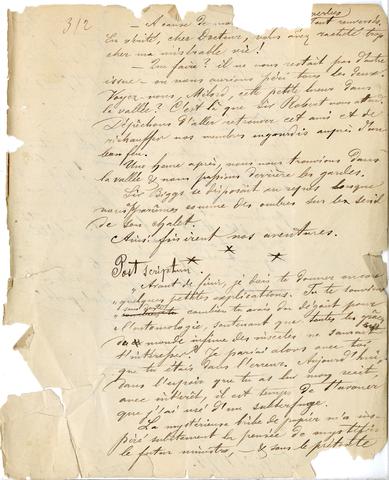 312
— A cause de moi
En vérité, cher Docteur, vous avez racheté trop
cher ma misérable vie!
— En faire? il ne nous restait pas d'autre
issue — où nous aurions péri tous les deux.
Voyez-vous, Milord, cette petite lueur dans
la vallée? C'est là que Sir Robert nous attend
Dépêchons d'aller retrouver cet ami et de
réchauffer nos membres engourdis auprès d'un
bon feu.
Une heure après, nous nous trouvions dans
la vallée & nous passions derrière les gardes.
Sir Biggs se disposait au repos lorsque
nous parûmes comme des ombres sur le seuil
de son chalet.
Ainsi finirent nos aventures.
Post scriptum.
Avant de finir, je dois te donner encore
quelques petites explications. Tu te souviens
combien tu avais du dégoût pour
l'entomologie, soutenant que toutes les
monde infime des insectes ne saurait
t'intéresser. Je pariai alors avec toi
que tu étais dans l'erreur. Aujourd'hui
dans l'espoir que tu as lu mon récit
avec intérêt, il est temps de t'avouer
que j'ai usé d'un subterfuge.
La mystérieuse tribu de papier m'a ins-
piré subitement la pensée de mystifier
le futur ministre, — & sous le prétexte